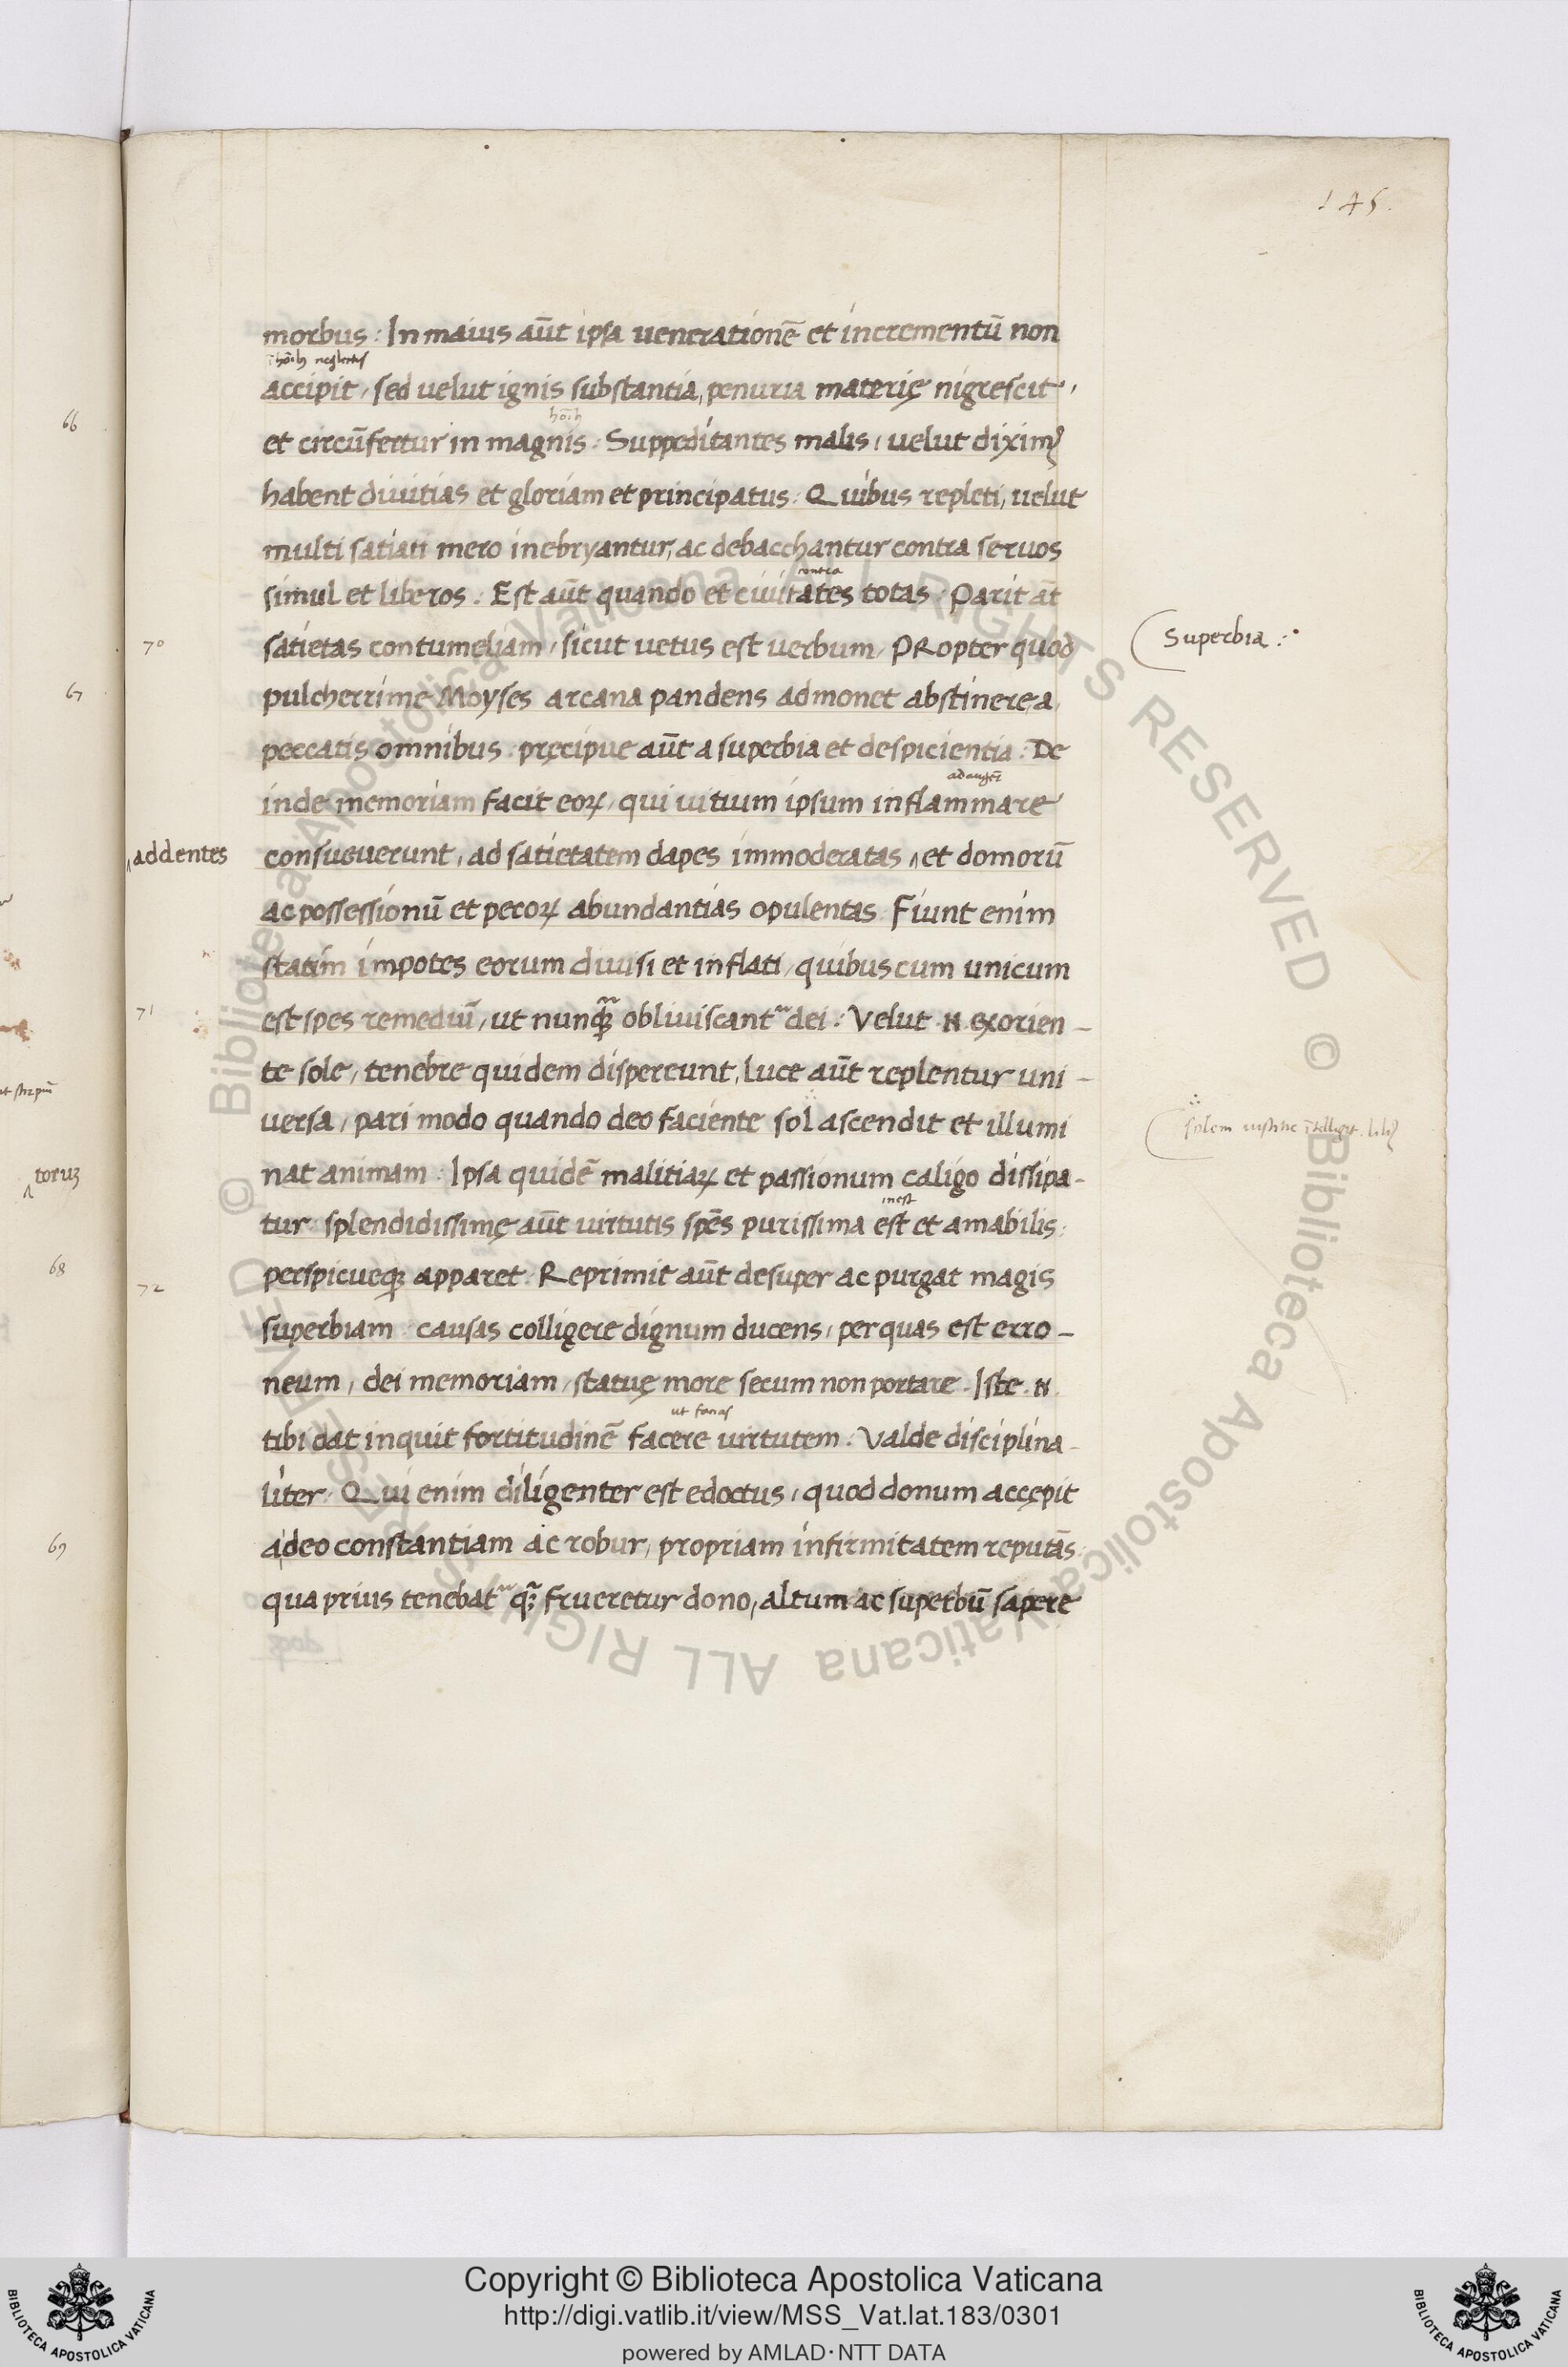 145.
morbus : In maius aūt ipsa uenerationē et incrementū non
accipit, sed uelut ignis substantia, penuria materię nigrescit,
hoīb
et circūfertur in magnis : Suppeditantes malis, uelut diximꝰ
habent diuitias et gloriam et principatus : Quibus repleti, uelut
multi satiati mero inebryantur, ac debacchantur contra seruos
contra
simul et liberos : Est aūt quando et ciuitates totas : Parit āt
70
satietas contumeliam, sicut uetus est uerbum, PRopter quod
Superbia :
pulcherrime Moyses arcana pandens admonet abstinere a
peccatis omnibus : pręcipue aūt a superbia et despicientia : De
inde memoriam facit eoꝝ, qui uitium ipsum inflammare
addentes
consueuerunt, ad satietatem dapes immoderatas ‸ et domorū
ac possessionū et pecoꝝ abundantias opulentas : Fiunt enim
statim impotes eorum diuisi et inflati, quibus cum unicum
71
est spes remediū, ut nunꝗ̄ obliuiscantʳ dei : Velut .N. exorien-
te sole, tenebre quidem dispereunt, luce aūt replentur uni-
uersa, pari modo quando deo faciente sol ascendit et illumi
nat animam : Ipsa quidē malitiaꝝ et passionum caligo dissipa-
inest
tur : splendidissimę aūt uirtutis spēs purissima est et amabilis :
72
perspicueqꝫ apparet : Reprimit aūt desuper ac purgat magis
superbiam : causas colligere dignum ducens, per quas est erro-
neum, dei memoriam, statuę more secum non portare . Iste .N.
ut farias
tibi dat inquit fortitudinē facere uirtutem : Valde disciplina-
liter : Qui enim diligenter est edoctus, quod donum accępit
a deo constantiam ac robur, propriam infirmitatem reputās :
qua prius tenebatʳ qꝫ̄ frueretur dono, altum ac superbū sapere
66
67
toruꝫ
68
69
© Biblioteca Apostolica Vaticana ALL RIGHTS RESERVED © Biblioteca Apostolica Vaticana ALL RIGHTS RESERVED
Copyright © Biblioteca Apostolica Vaticana
http://digi.vatlib.it/view/MSS_Vat.lat.183/0301
powered by AMLAD·NTT DATA
BIBLIOTECA APOSTOLICA VATICANA
BIBLIOTECA APOSTOLICA VATICANA